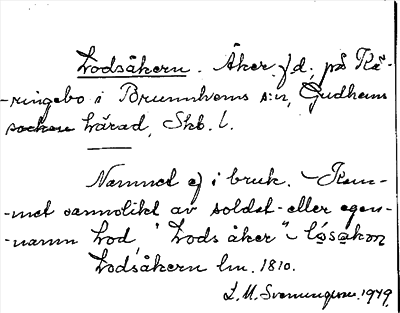 Lodsåkern. Åker. f.d. på Kä-
-ringebo i Brunnhems s:n, Gudhems
socken härad, Skb. l.
Namnet ej i bruk. Kom-
-met sannolikt av soldat- eller egen-
-namn Lod, "Lods åker"
Lodsåkern lm. 1810.
1949.